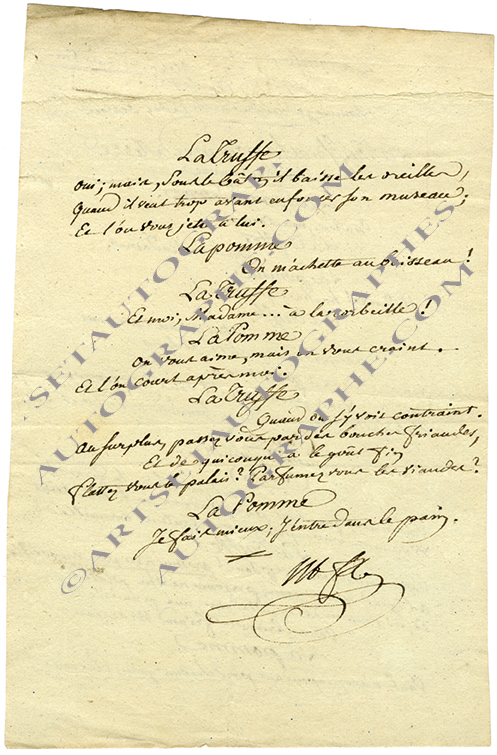 La Truffe
oui; mais, sous le bâton, il baisse les oreilles,
Quand il veut trop avant enfoncer son museau;
Et l'on vous jete à lui.
La pomme
On m'achette au boisseau!
La Truffe
Et moi, Madame... à la corbeille!
La Pomme
on vous aime, mais on vous craint.
Et l'on court après moi.
La Truffe
Quand on s'y voit contraint.
Au surplus, passez vous par des bouches friandes,
Et de quiconque a le goût fin
flattez vous le palais? Parfumez vous les viandes?
La Pomme
Je fais mieux; J'entre dans le pain.
© ARTS ET AUTOGRAPHES
AUTOGRAPHE.COM